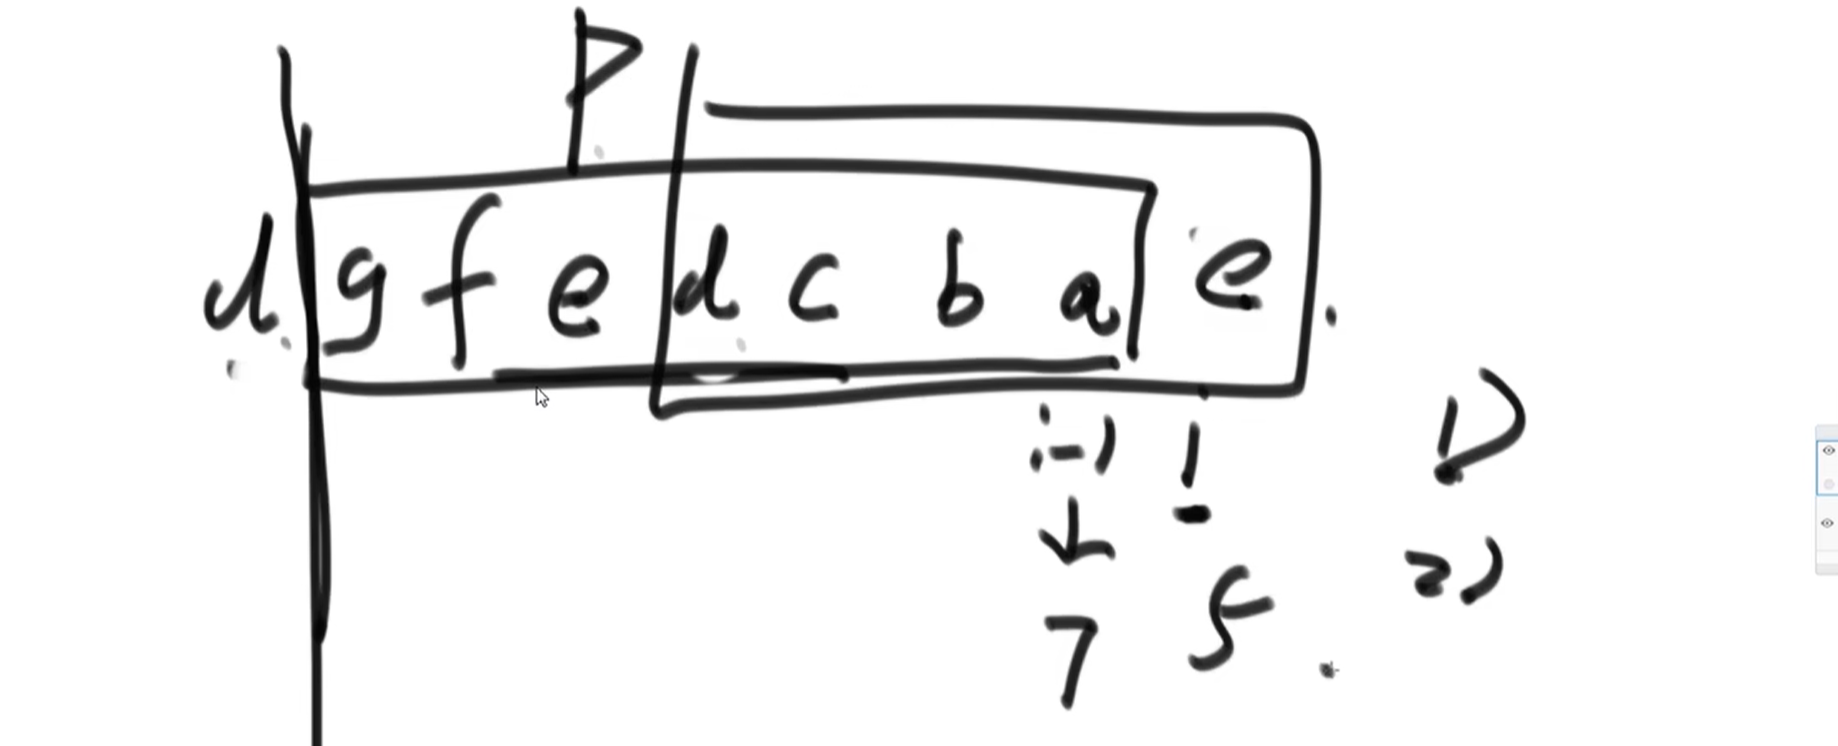 P
d g f e d c b a e
i-1 i
7 5
1)
2)